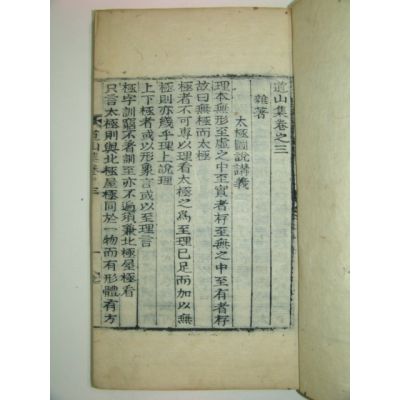 道山集卷之三
雜著
太極圖說講義
理本無形至虛之中至實者存至無之中至有者存
故曰無極而太極
極者不可專以理看太極之爲至理已足而加以無
極則亦幾乎理上說理
上下極者或以形象言或以至理言
極字訓窮不者訓至亦不過須兼北極屋極看
只言太極則與北極屋極同於一物而有形體有方
道山集卷三